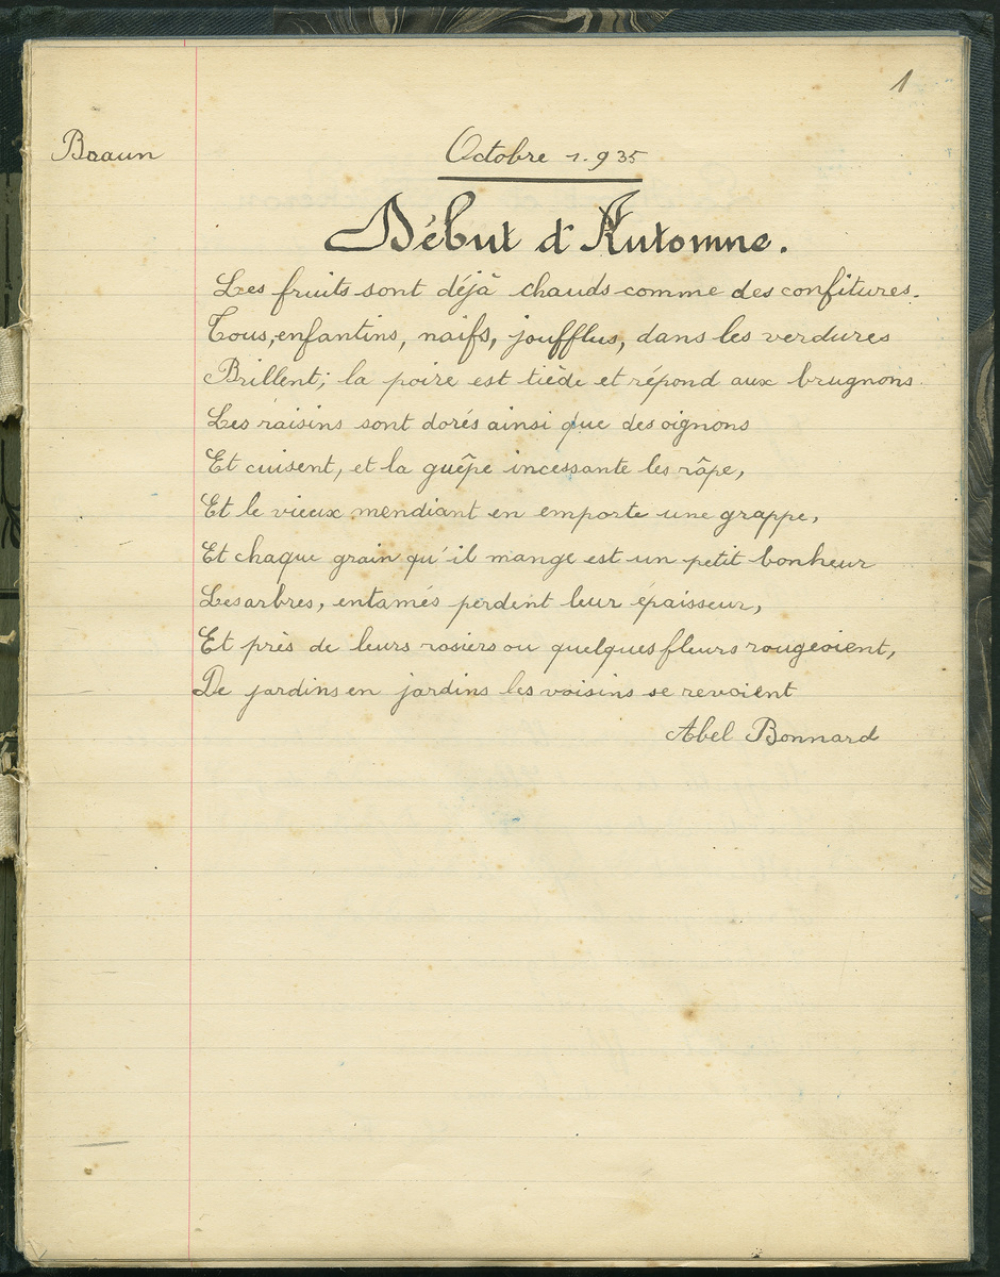 1
Braun
Octobre 1.935
Début d'Automne.
Les fruits sont déjà chauds comme des confitures.
Tous, enfantins, naïfs, joufflus, dans les verdures
Brillent; la poire est tiède et répond aux brugnons.
Les raisins sont dorés ainsi que des oignons
Et cuisent, et la guêpe incessante les râpe,
Et le vieux mendiant en emporte une grappe,
Et chaque grain qu'il mange est un petit bonheur
Les arbres, entamés perdent leur épaisseur,
Et près de leurs rosiers ou quelques fleurs rougeoient,
De jardins en jardins les voisins se revoient
Abel Bonnard